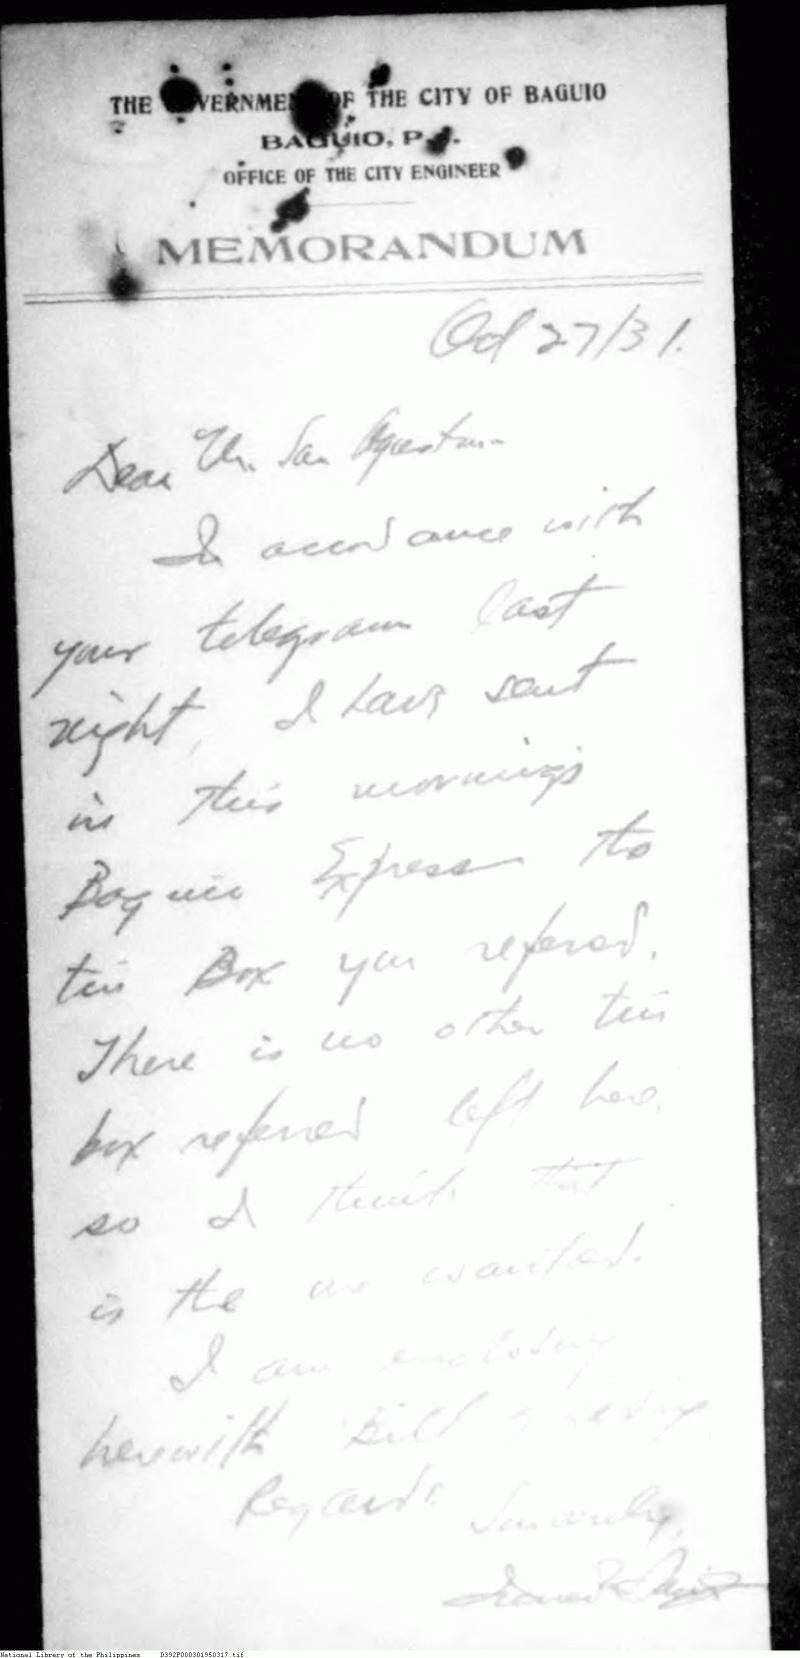 THE GOVERNMENT OF THE CITY OF BAGUIO
BAGUIO, P. I.
OFFICE OF THE CITY ENGINEER
MEMORANDUM
Oct 27/31.
Dear Mr. San Agustin
In accordance with
your telegram last
night, I have sent
in this morning's
Baguio Express the
tin Box you refered.
There is no other tin
box referred left here.
so I think that
is the one wanted.
I am enclosing
herewith Bill of lading
Regards. Sincerely,
National Library of the Philippines D392P000301950317.tif